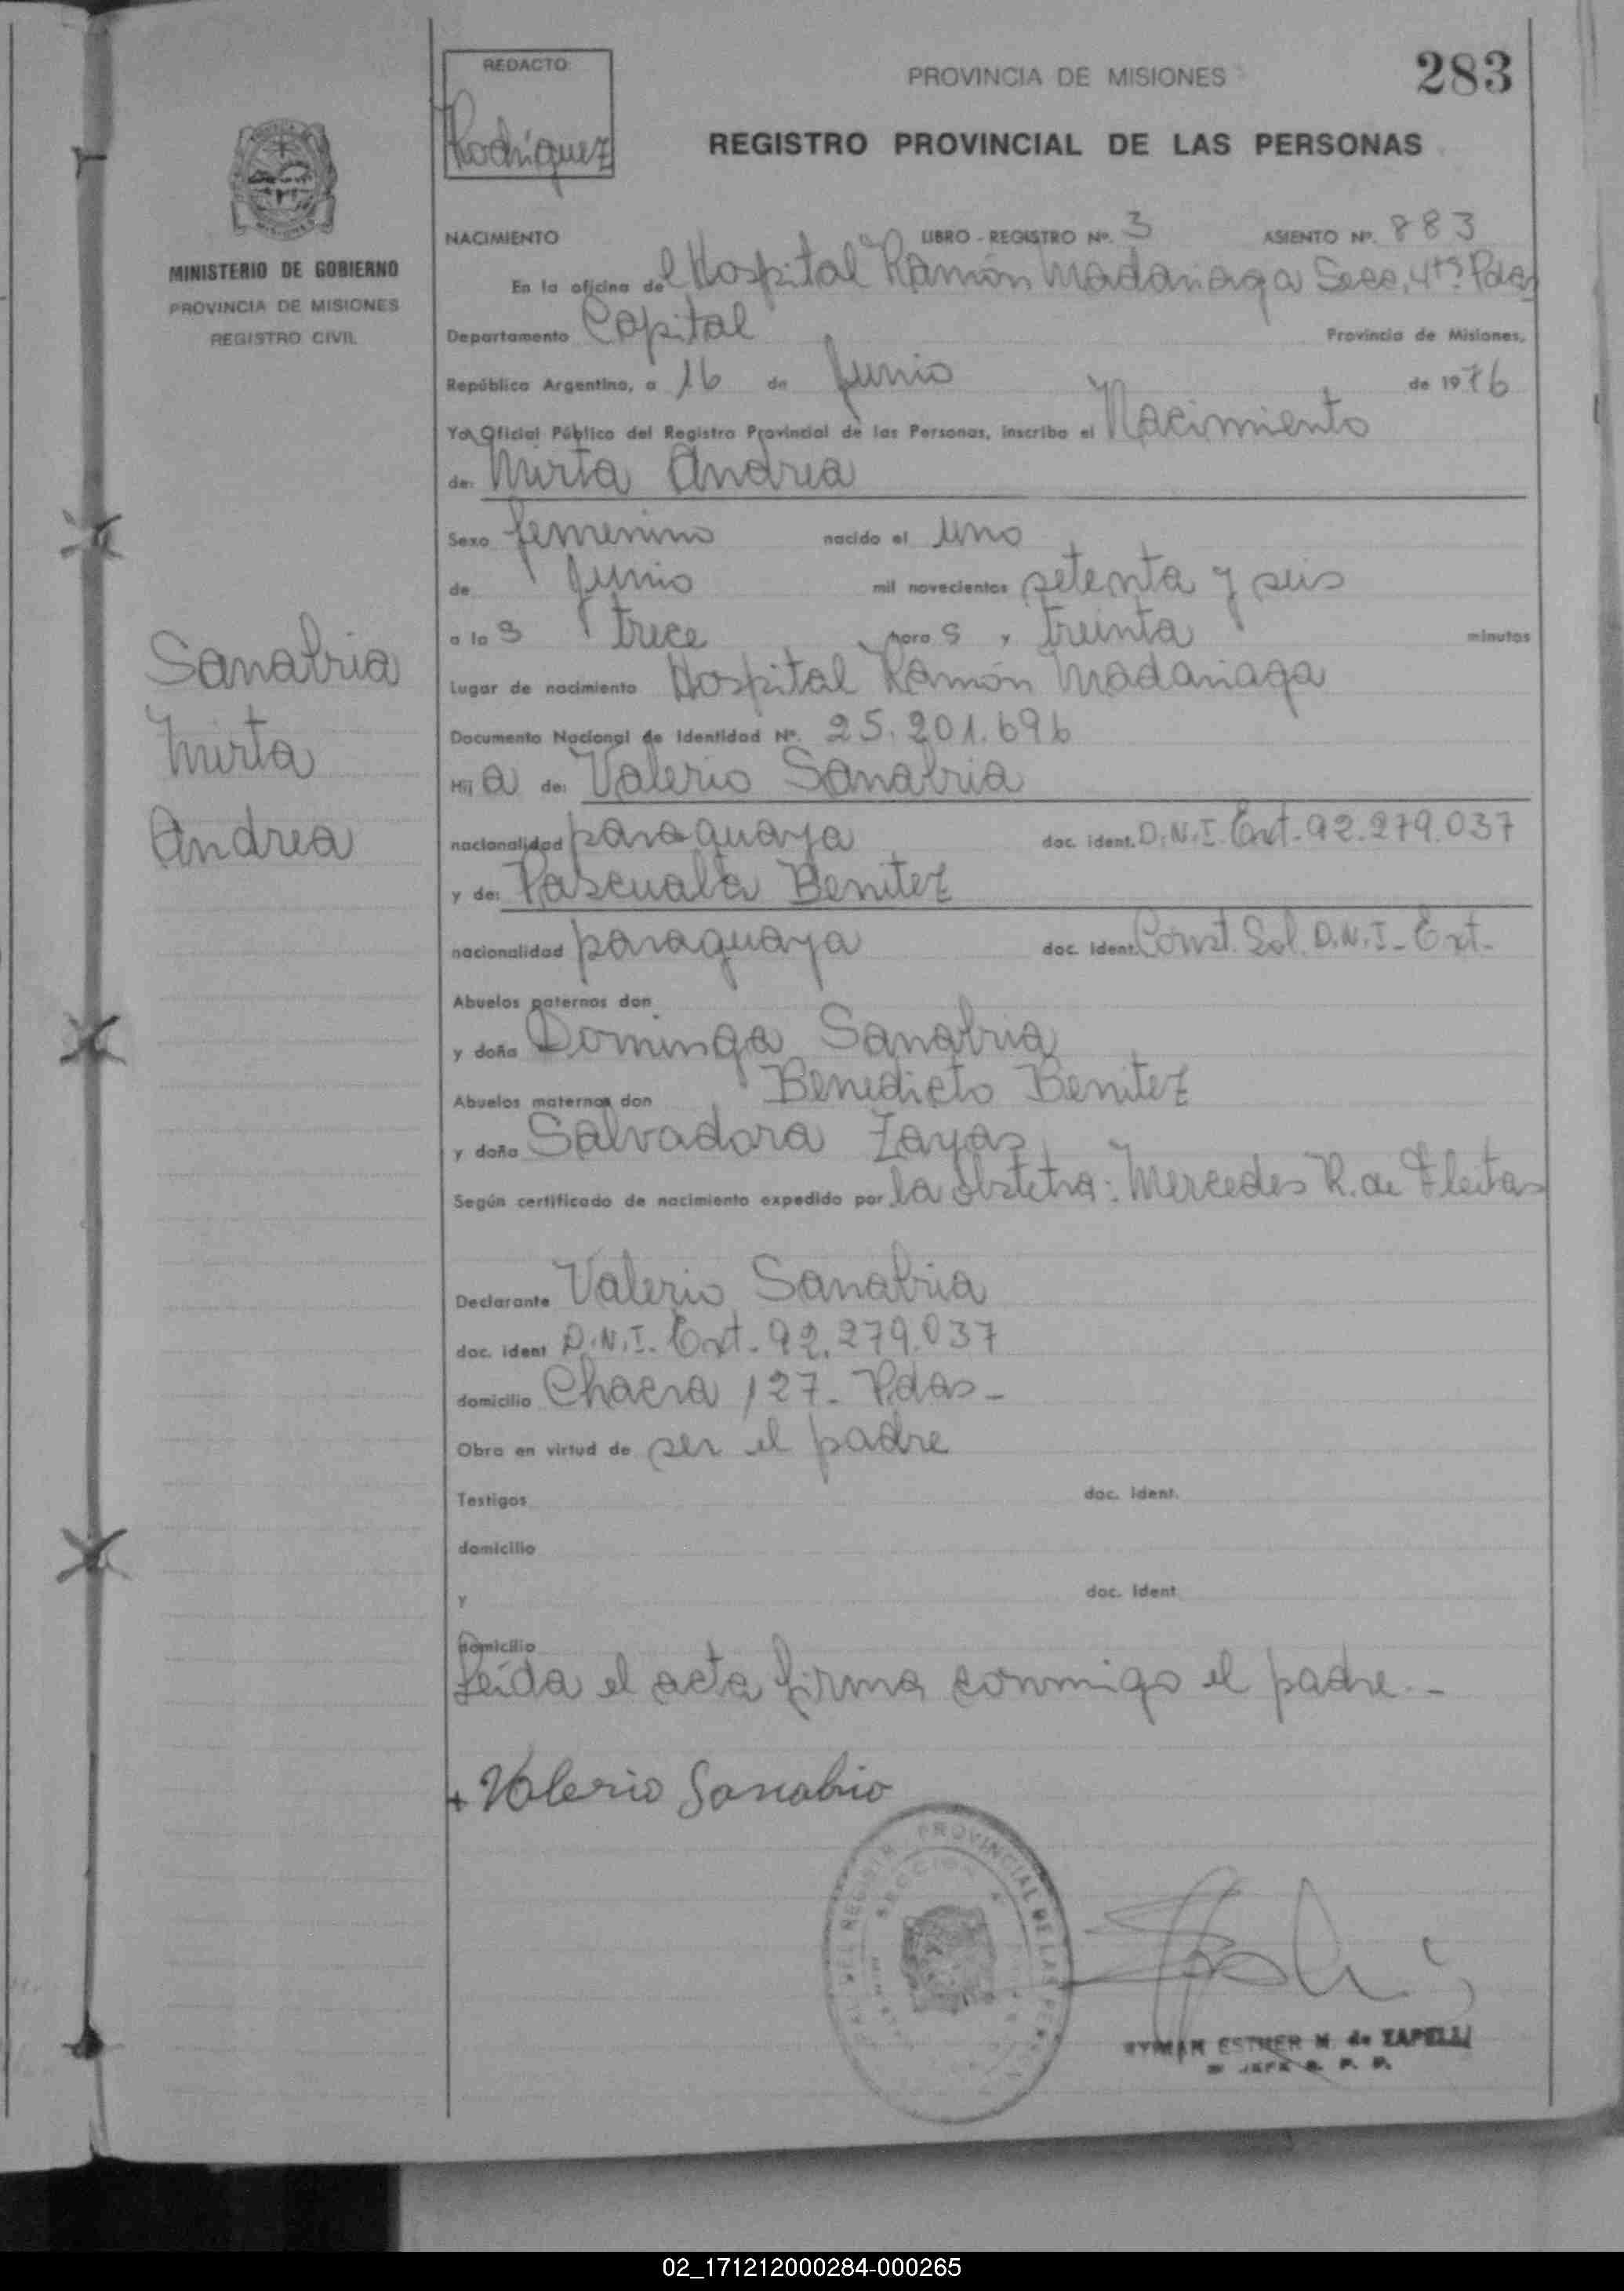 REDACTO:
Rodríguez
PROVINCIA DE MISIONES
283
REGISTRO PROVINCIAL DE LAS PERSONAS
MINISTERIO DE GOBIERNO
PROVINCIA DE MISIONES
REGISTRO CIVIL
Sanabria
Mirta
Andrea
NACIMIENTO LIBRO - REGISTRO Nº. 3 ASIENTO Nº. 883
En la oficina del Hospital Ramón Madariaga Secc. 4ta. Pdas
Departamento Capital Provincia de Misiones,
República Argentina, a 16 de Junio de 1976
Yo, Oficial Público del Registro Provincial de las Personas, inscribo el Nacimiento
de: Mirta Andrea
Sexo femenino nacido el uno
de Junio mil novecientos setenta y seis
a las trece horas y treinta minutos
Lugar de nacimiento Hospital Ramón Madariaga
Documento Nacional de Identidad Nº. 25.201.696
Hija de: Valerio Sanabria
nacionalidad paraguaya doc. ident. D.N.I. Ext. 92.279.037
y de: Pascuala Benitez
nacionalidad paraguaya doc. ident. Const. Sol. D.N.I. Ext.
Abuelos paternos don
y doña Dominga Sanabria
Abuelos maternos don Benedicto Benitez
y doña Salvadora Zayas
Según certificado de nacimiento expedido por la obstetra: Mercedes R. de Fleitas
Declarante Valerio Sanabria
doc. ident D.N.I. Ext. 92.279.037
domicilio Chacra 127- Pdas-
Obra en virtud de ser el padre
Testigos doc. ident.
domicilio
y doc. ident.
domicilio
Leída el acta firma conmigo el padre.-
+ Valerio Sanabrio
PROVINCIAL DE LAS
SECCION
ESTHER M. de ZAPELLI
JEFE R. P. P.
02_171212000284-000265